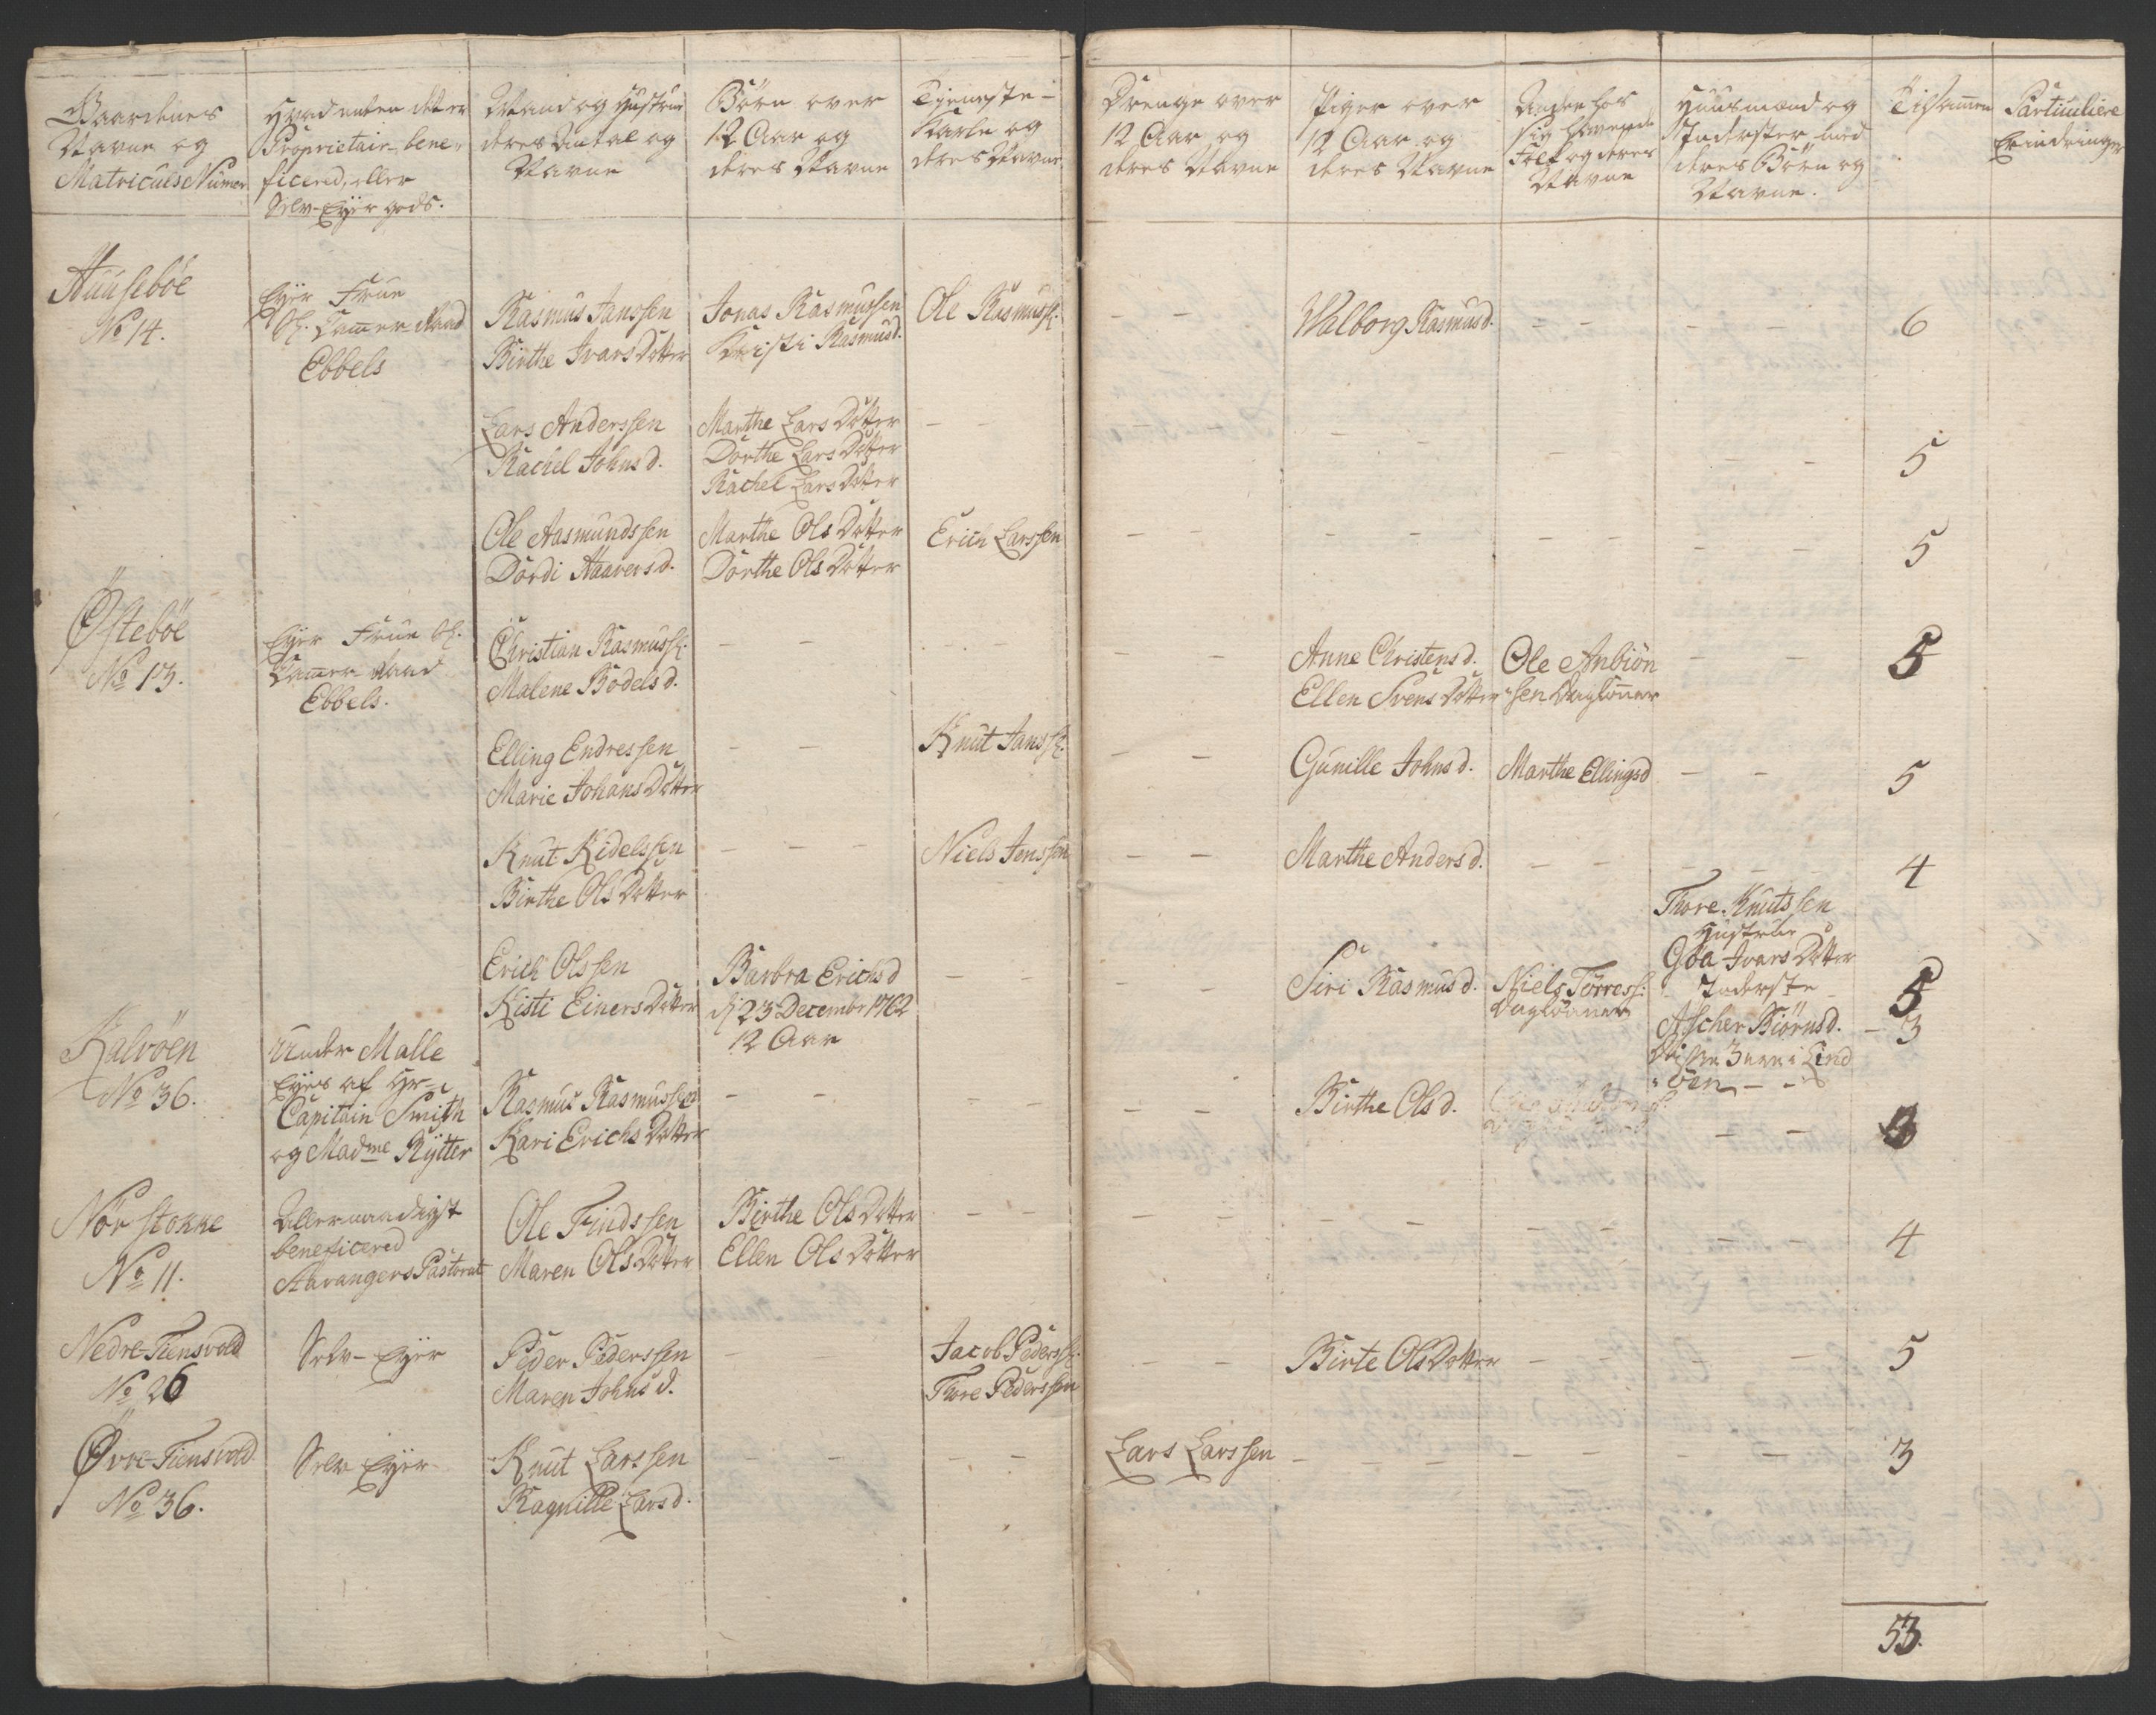 Gaardenes
Navne og
Matriculs Numer
Hvad enten det er
Proprietair- bene-
ficered, eller
Selv-Eyer gods.
Mand og Hustrue
deres Antal og
Navne
Börn over
12 Aar og
deres Navne
Tjeneste-
Karle og
deres Navne
Drenge over
12 Aar og
deres Navne
Piger over
12 Aar og
deres Navne
hos
sig havende
Folk og deres
Navne
Huusmænd og
Inderster med
deres Börn og
Navne.
Tilsamen
Particuliere
Erindringer
Huuseböe
No 14.
Eyer Frue
Cammer-Raad
Ebbels
Rasmus Janssen
Birthe Ivars Dotter
Jonas Rasmussen
Kristi Rasmusd.
Ole Rasmuss.
- -
Walborg Rasmusd.
- -
- -
6
Lars Anderssen
Rachel Johnsd.
Marthe Lars Dotter
Dorthe Lars Dotter
Rachel Lars Dotter
- -
- -
-
- -
5
Ole Aasmundssen
Dordi Haaversd.
Marthe Ols Dotter
Dorthe Ols Dotter
Erich Larssen
- -
- -
- -
- -
5
Östeböe
No 13.
Eyer Frue
Cammer-Raad
Ebbels.
Christian Rasmuss.
Malene Bodelsd.
-
- -
- -
Anne Christensd.
Ellen Svens Dotter
Ole Anbiön
sen Daglönner
- -
5
Elling Endressen
Marie Johans Dotter
- -
Knut Janss.
- -
Gunille Johnsd.
Marthe Ellingsd
- -
5
Knut Kidelssen
Birthe Ols Dotter
- - -
Niels Jenssen
- -
Marthe Andersd.
- -
4
Erich Olssen
Kisti Einers Dotter
Barbra Erichsd
d 23 December 1762
12 Aar
- -
- -
Siri Rasmusd.
Niels Torress.
Daglönner
Thore Knutssen
Hustrue
Göa Ivars Dotter
Inderste
Ascher Biörnsd.
Disse 3
öen - -
5
- 3
Kalvöen
No 36.
Under Malle
Eyes af Hr.
Capitain Smith
og Madme Rÿtter
Rasmus Rasmussen
Kari Erichs Dotter
- -
- -
- -
Birthe Olsd.
- -
3
Nör stokke
No 11.
Allernaadigst
beneficered
Stavangers Pastorat
Ole Findssen
Maren Ols Dotter
Birthe Ols Dotter
Ellen Ols Dotter
- -
- -
- -
- -
- -
4
Nedre-Tiensvold
No 26
Selv-Eyer
Peder Pederssen
Maren Johnsd.
-
Jacob Pederss.
Thore Pederssen
- -
Birte Ols Dotter
- -
- -
5
Övre-Tiensvold
No 36.
Selv Eyer
Knut Larssen
Ragnille Larsd.
- -
- -
Lars Larssen
- - -
- -
- -
3
53.